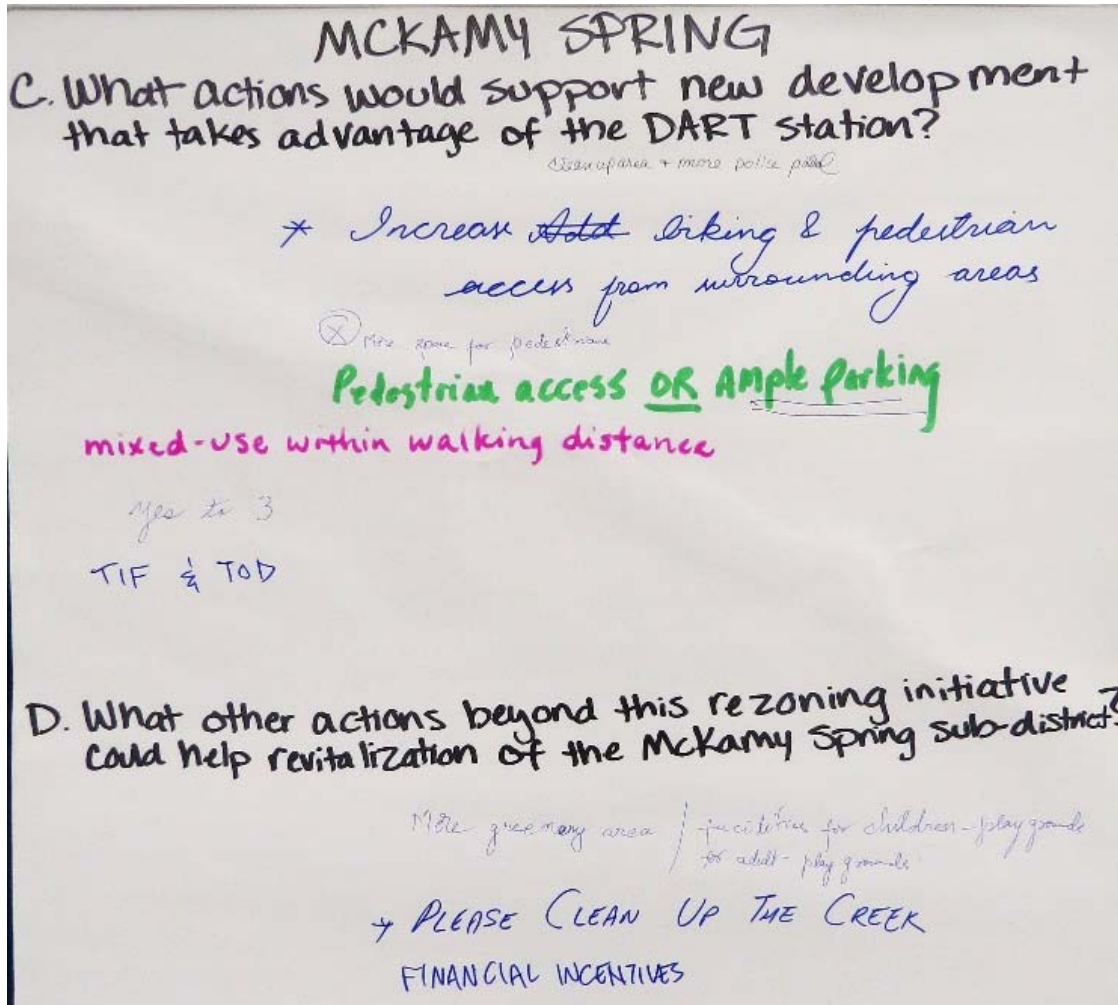 MCKAMY SPRING
C. What actions would support new development
that takes advantage of the DART station?
Clean up area + more police patrol
* Increase Add biking & pedestrian
access from surrounding areas
X More space for pedestrians
Pedestrian access OR Ample Parking
mixed-use within walking distance
Yes to 3
TIF & TOD
D. What other actions beyond this rezoning initiative
could help revitalization of the McKamy Spring sub-district?
More greenery area / facilities for children - play grounds
or adult - play grounds
* PLEASE CLEAN UP THE CREEK
FINANCIAL INCENTIVES